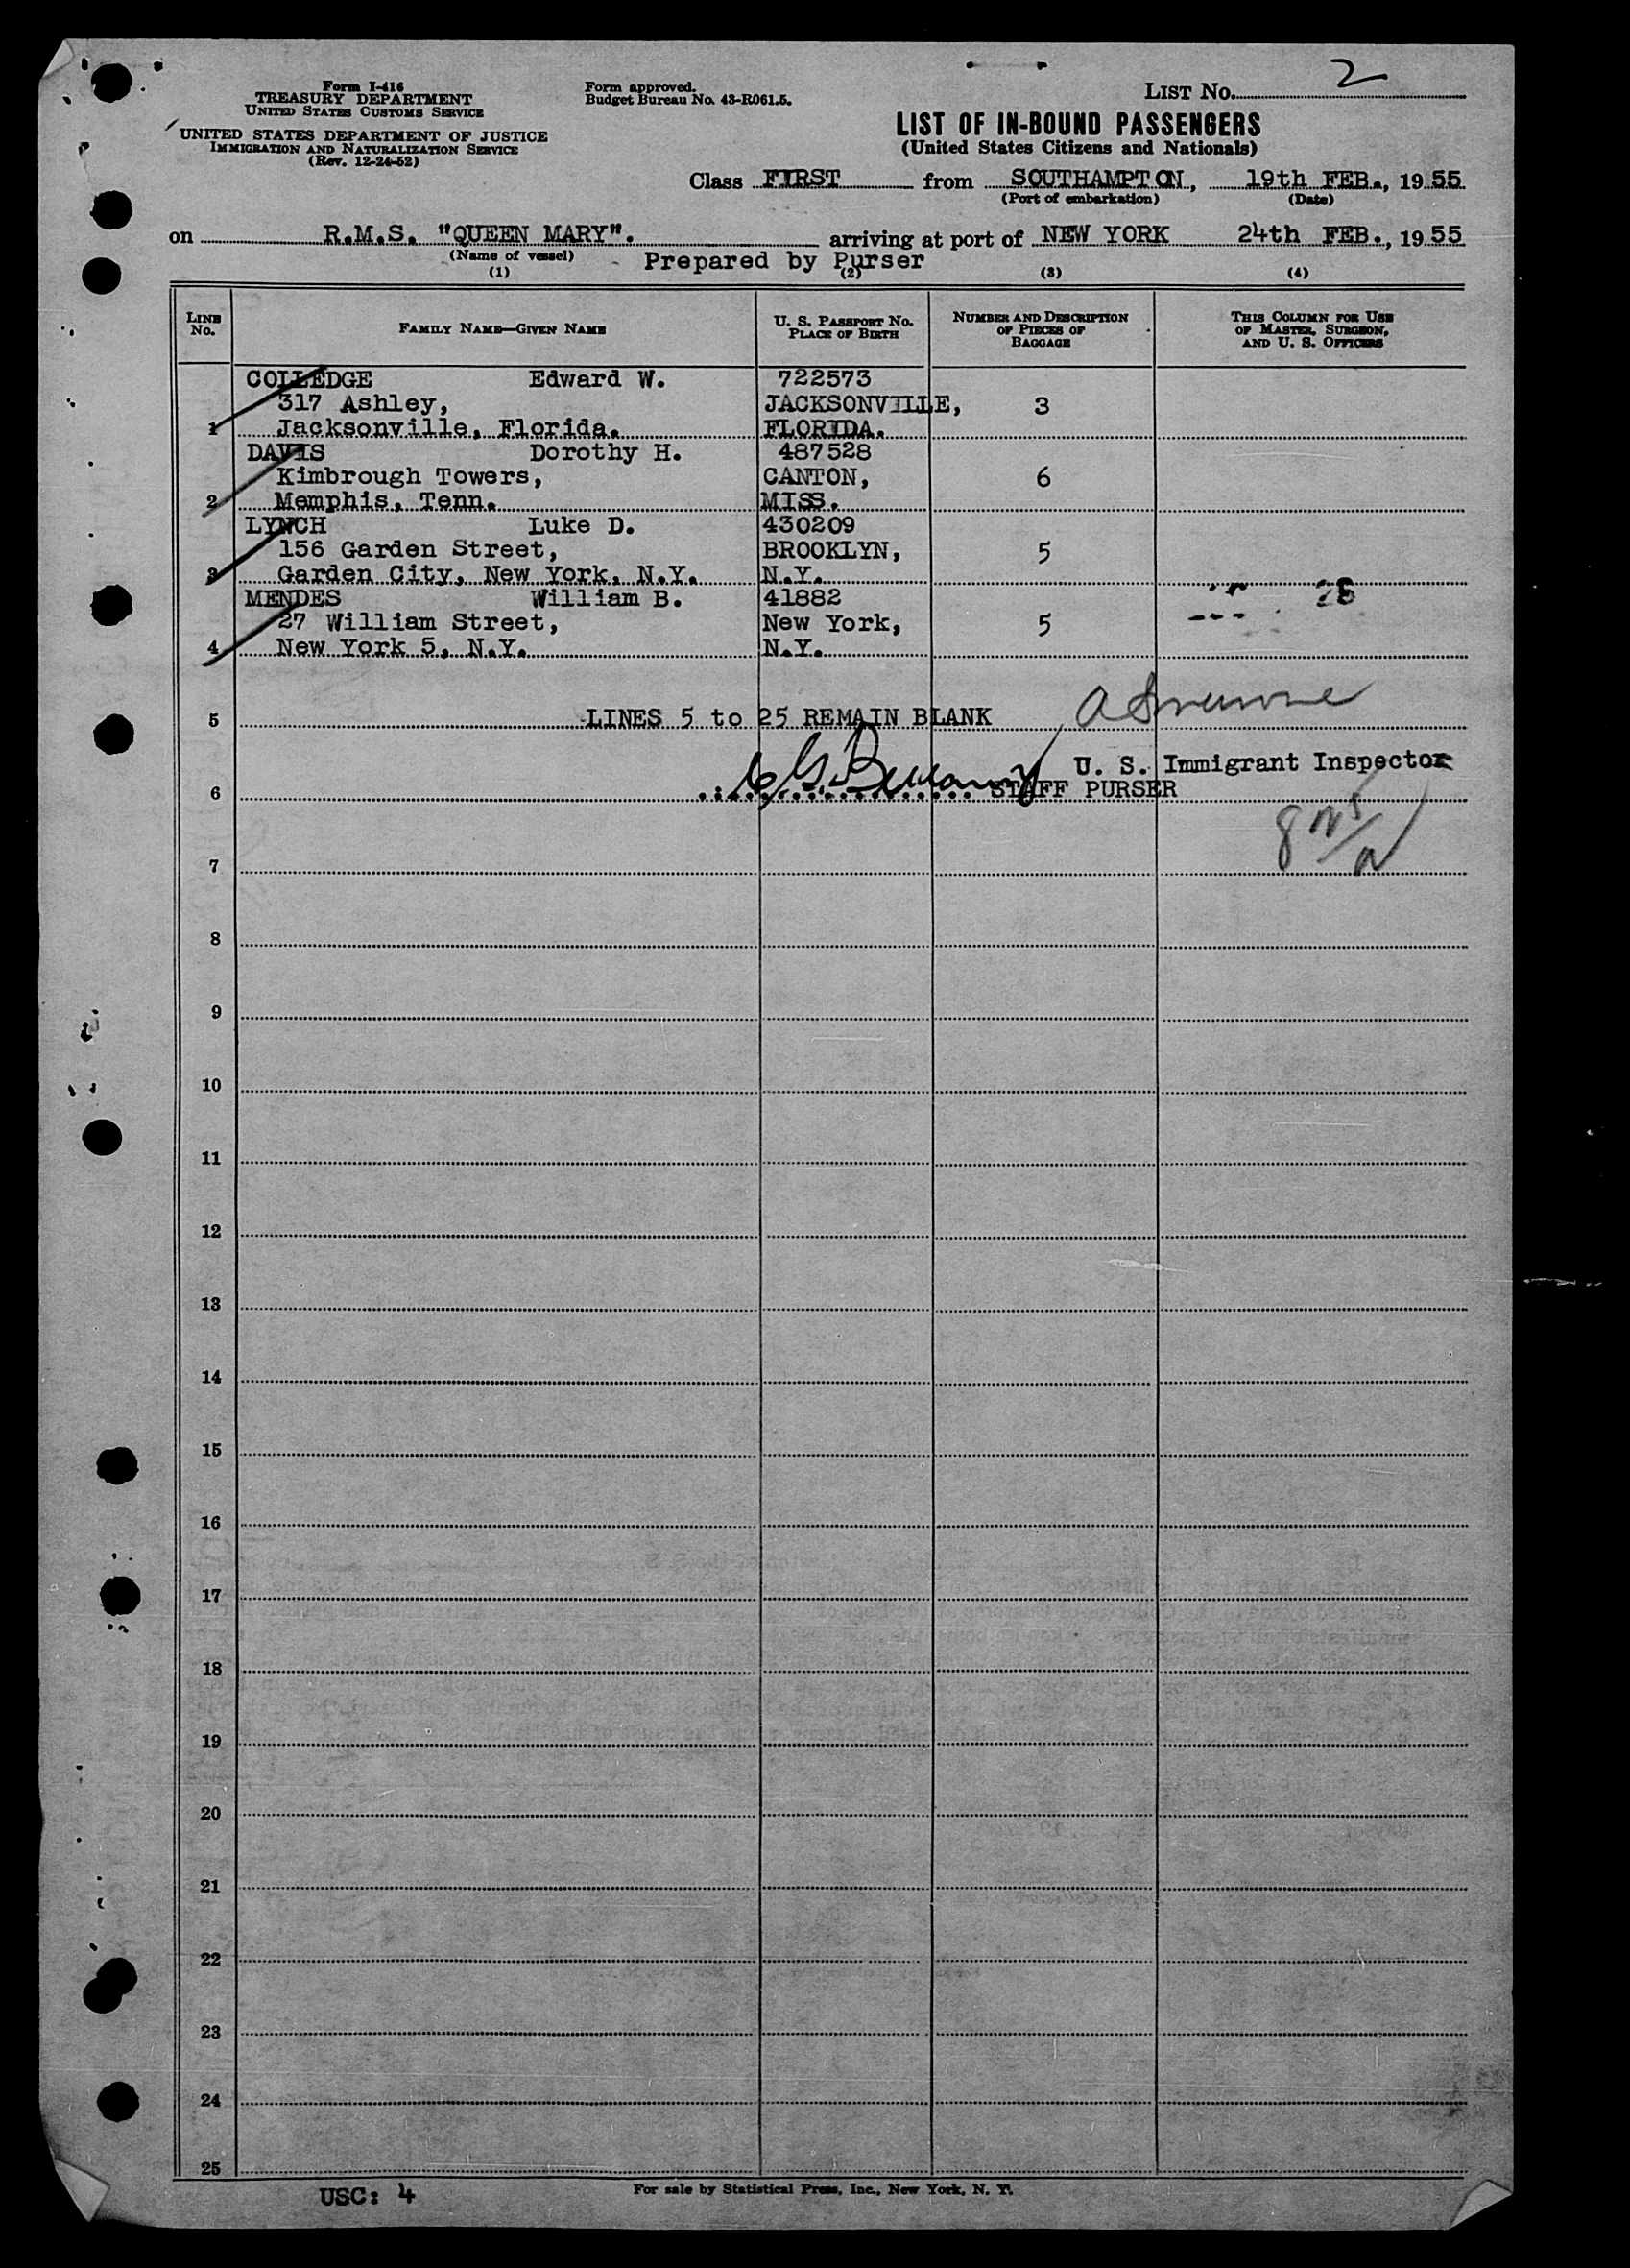 Form I-416
TREASURY DEPARTMENT
UNITED STATES CUSTOMS SERVICE
UNITED STATES DEPARTMENT OF JUSTICE
IMMIGRATION AND NATURALIZATION SERVICE
(Rev. 12-24-52)
Form approved.
Budget Bureau No. 43-R061.5.
LIST NO. 2
LIST OF IN-BOUND PASSENGERS
(United States Citizens and Nationals)
Class FIRST from SOUTHAMPTON, 19th FEB., 1955
(Port of embarkation) (Date)
on R.M.S. "QUEEN MARY". arriving at port of NEW YORK 24th FEB., 1955
(Name of vessel) Prepared by Purser
(1) (2) (3) (4)
LINE No. FAMILY NAME—GIVEN NAME U. S. PASSPORT NO. PLACE OF BIRTH NUMBER AND DESCRIPTION OF PIECES OF BAGGAGE THIS COLUMN FOR USE OF MASTER, SURGEON, AND U. S. OFFICERS
COLLEDGE Edward W. 722573
317 Ashley, JACKSONVILLE, 3
1 Jacksonville, Florida. FLORIDA.
DAVIS Dorothy H. 487528
Kimbrough Towers, CANTON, 6
2 Memphis, Tenn. MISS.
LYNCH Luke D. 430209
156 Garden Street, BROOKLYN, 5
3 Garden City, New York, N.Y. N.Y.
MENDES William B. 41882
27 William Street, New York, 5
4 New York 5, N.Y. N.Y.
5 LINES 5 to 25 REMAIN BLANK
U. S. Immigrant Inspector
6 STAFF PURSER
7
8
9
10
11
12
13
14
15
16
17
18
19
20
21
22
23
24
25
USC: 4 For sale by Statistical Press, Inc., New York, N. Y.